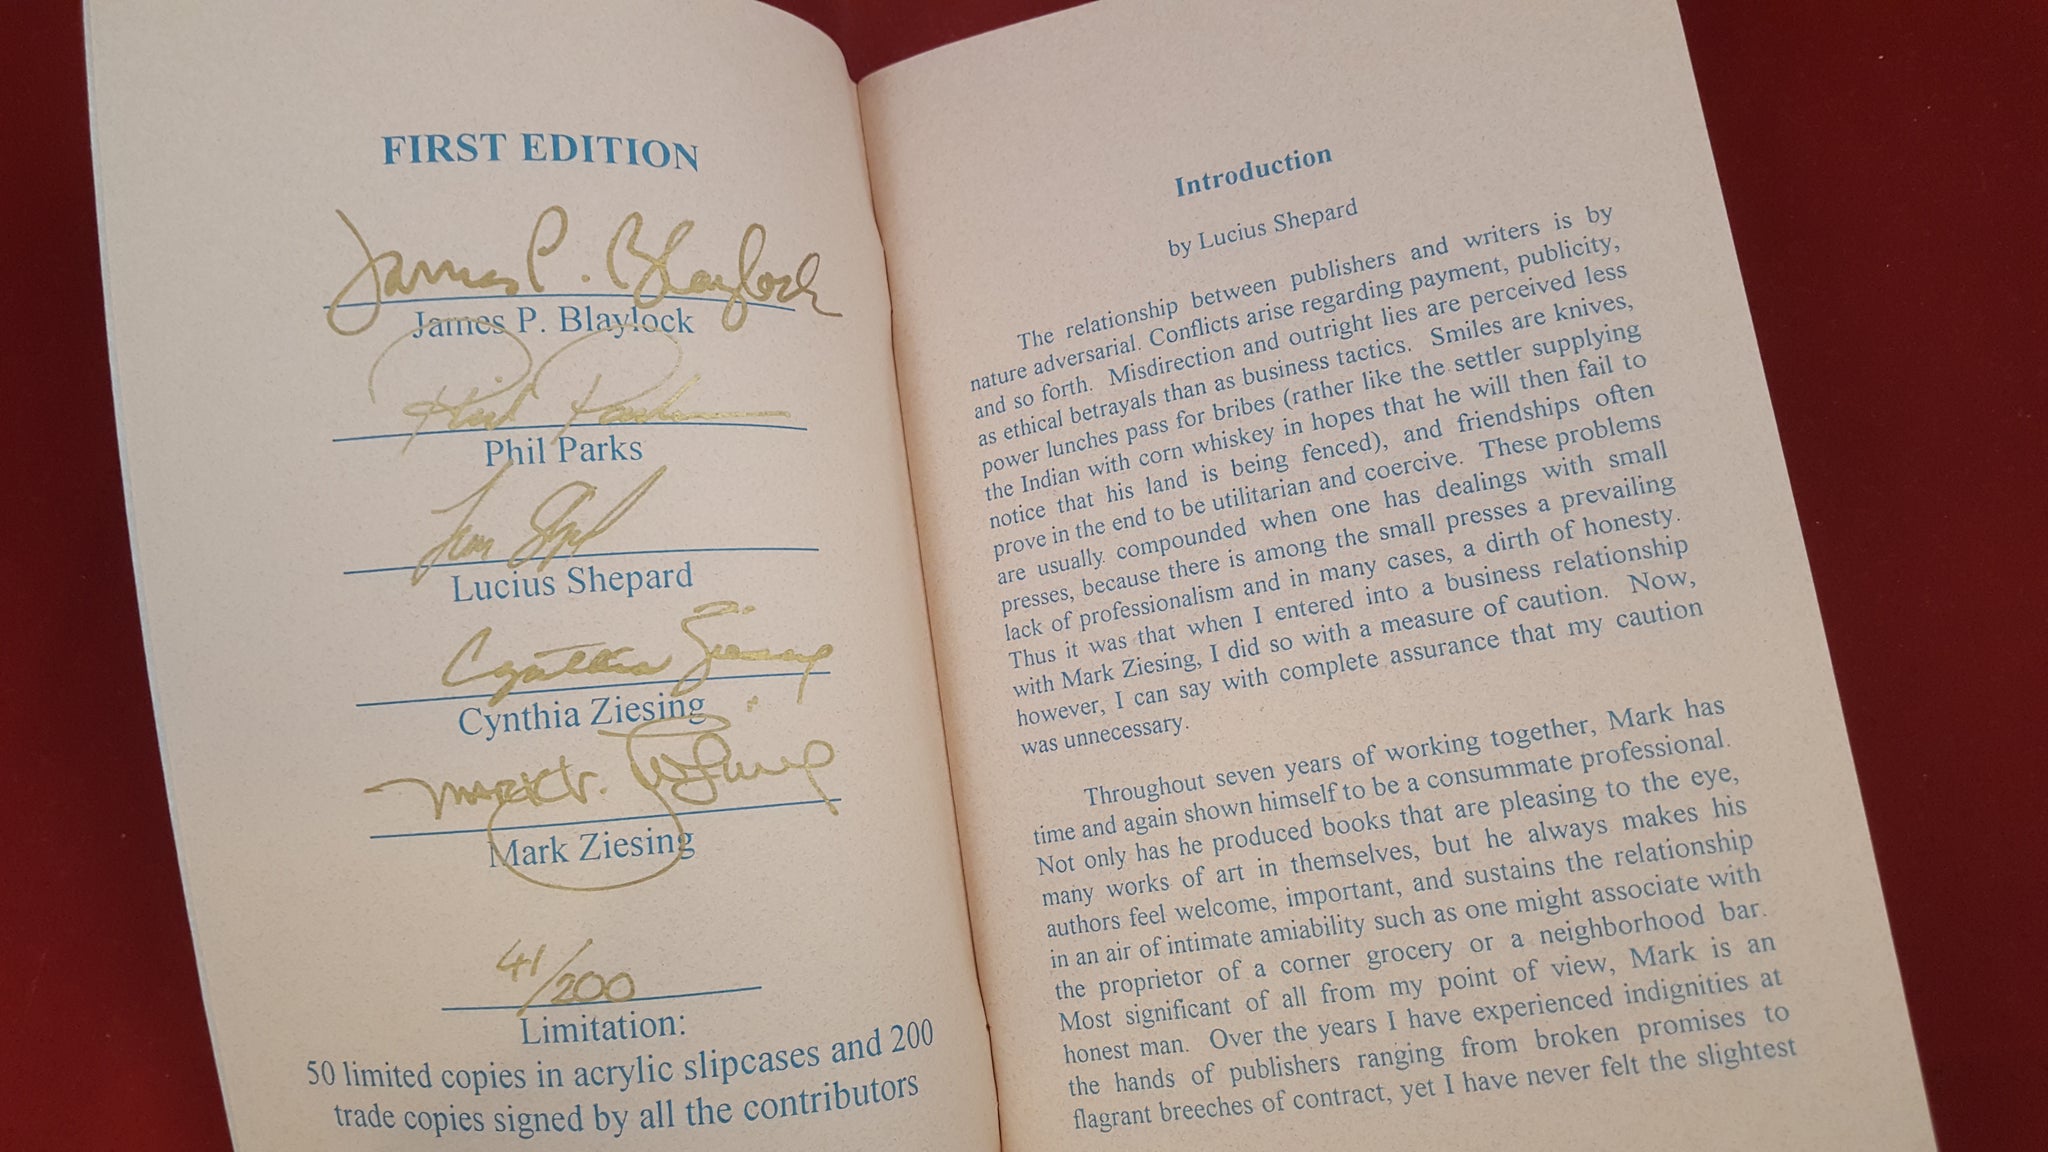 FIRST EDITION
James P. Blaylock
James P. Blaylock
Phil Parks
Phil Parks
Lucius Shepard
Cynthia Ziesing
Cynthia Ziesing
Mark V. Ziesing
Mark Ziesing
41/200
Limitation:
50 limited copies in acrylic slipcases and 200
trade copies signed by all the contributors
Introduction
by Lucius Shepard
The relationship between publishers and writers is by
nature adversarial. Conflicts arise regarding payment, publicity,
and so forth. Misdirection and outright lies are perceived less
as ethical betrayals than as business tactics. Smiles are knives,
power lunches pass for bribes (rather like the settler supplying
the Indian with corn whiskey in hopes that he will then fail to
notice that his land is being fenced), and friendships often
prove in the end to be utilitarian and coercive. These problems
are usually compounded when one has dealings with small
presses, because there is among the small presses a prevailing
lack of professionalism and in many cases, a dirth of honesty.
Thus it was that when I entered into a business relationship
with Mark Ziesing, I did so with a measure of caution. Now,
however, I can say with complete assurance that my caution
was unnecessary.
Throughout seven years of working together, Mark has
time and again shown himself to be a consummate professional.
Not only has he produced books that are pleasing to the eye,
many works of art in themselves, but he always makes his
authors feel welcome, important, and sustains the relationship
in an air of intimate amiability such as one might associate with
the proprietor of a corner grocery or a neighborhood bar.
Most significant of all from my point of view, Mark is an
honest man. Over the years I have experienced indignities at
the hands of publishers ranging from broken promises to
flagrant breeches of contract, yet I have never felt the slightest